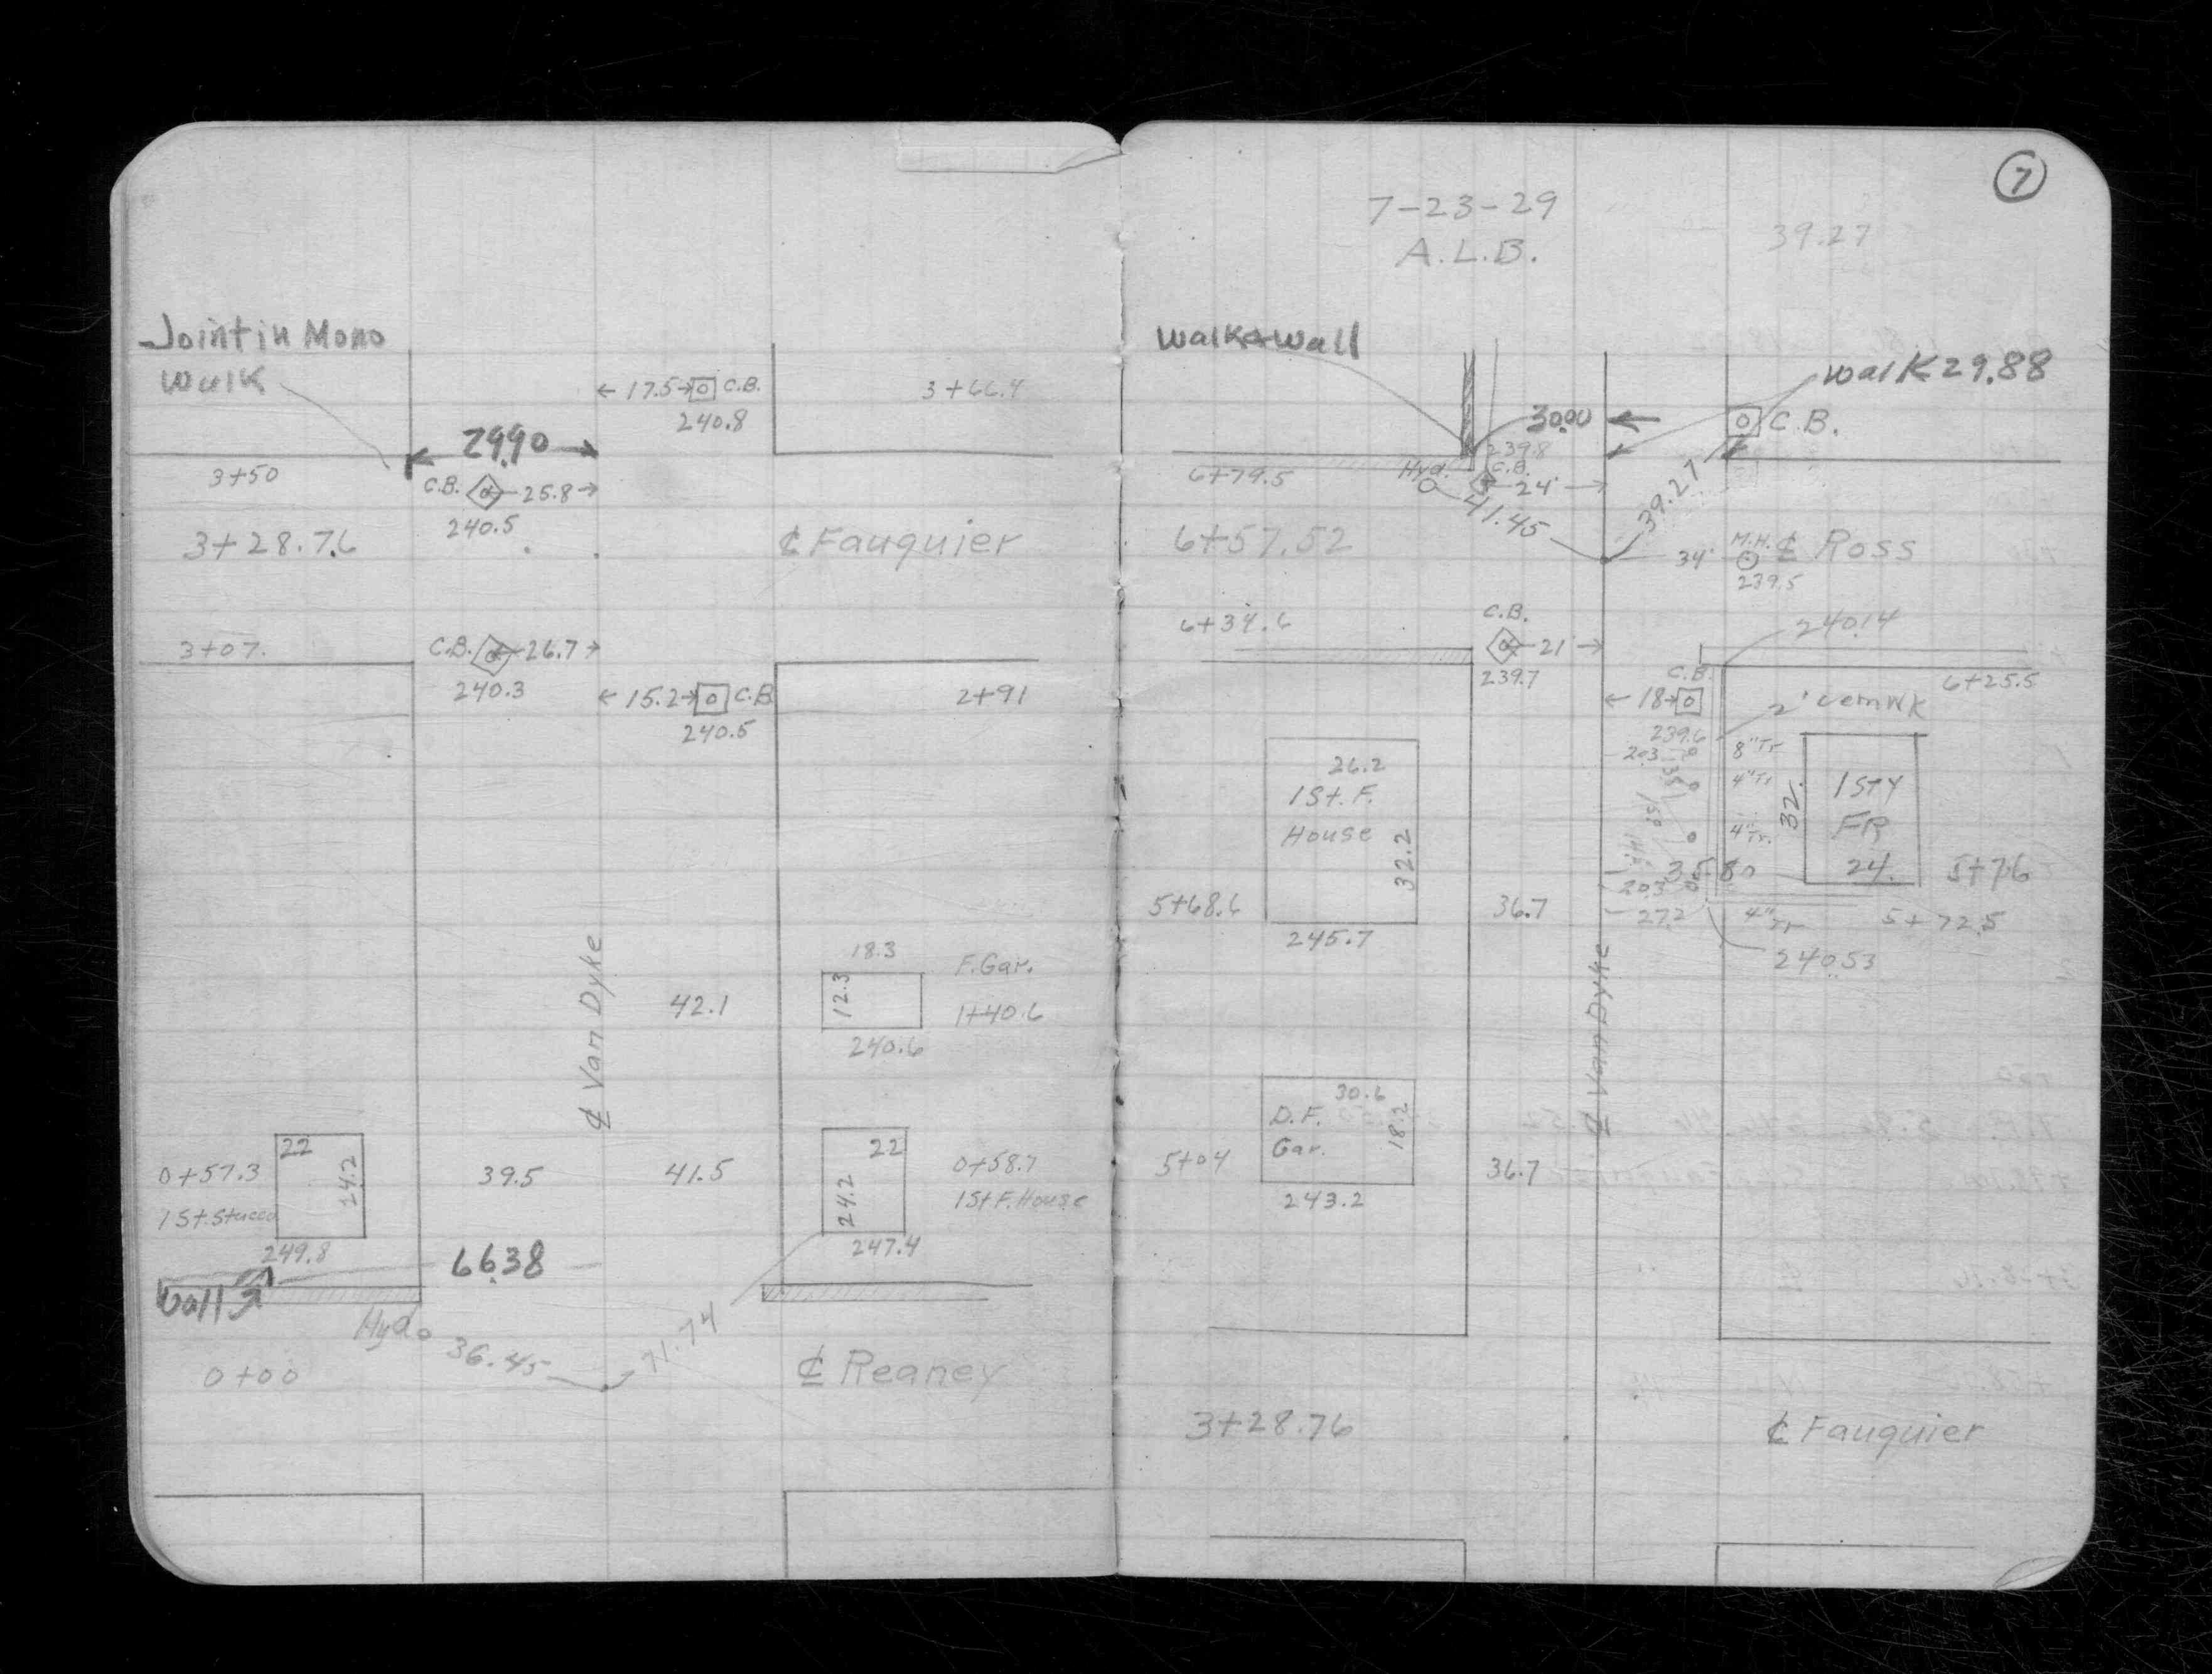 Joint in Mono
Walk
← 17.5 → C.B.
240.8
3+66.4
29.90
3+50
C.B. 25.8 →
240.5
3+28.76
℄ Fauquier
3+07.
C.B. 26.7 →
240.3
← 15.2 → C.B.
240.5
2+91
℄ Van Dyke
18.3
12.3
F. Gar.
42.1
1+40.6
240.6
22
24.2
0+57.3
1 St. Stucco
249.8
39.5
41.5
22
24.2
0+58.7
1 St F. House
247.4
66.38
Wall
Hyd.
36.45
71.74
0+00
℄ Reaney
7
7-23-29
A.L.B.
39.27
Walk & Wall
Walk 29.88
30.00
C.B.
239.8
6+79.5
Hyd.
C.B.
24'
41.45
39.27
6+57.52
34'
M.H.
℄ Ross
239.5
6+34.6
C.B.
21'
239.7
240.14
6+25.5
C.B.
← 18 →
239.6
2' cem WK
26.2
1 St. F.
House
32.2
5+68.6
245.7
36.7
20.3
8" Tr
4" Tr
4" Tr.
32.
1 STY
FR
24.
35.80
5+76
20.3
27.2
4" Tr
5+72.5
240.53
℄ Van Dyke
30.6
D.F.
Gar.
18.2
5+04
243.2
36.7
3+28.76
℄ Fauquier